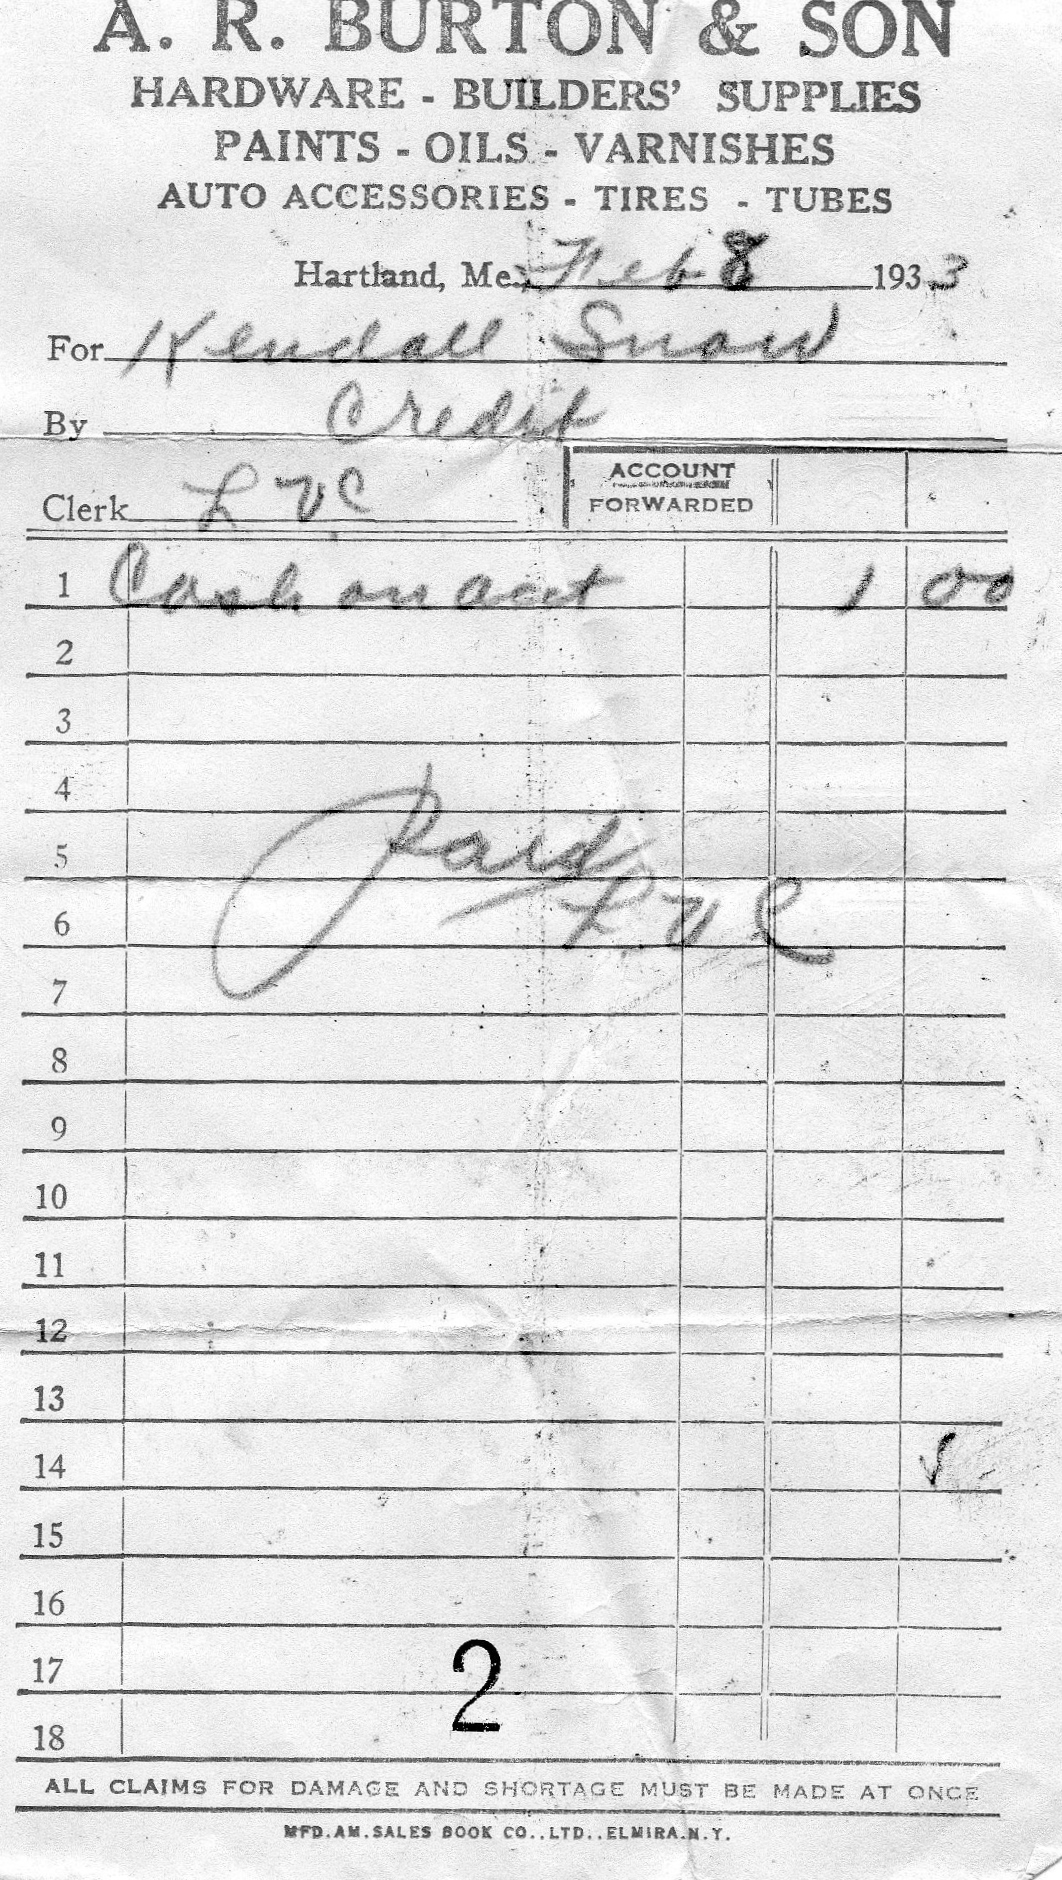 A. R. BURTON & SON
HARDWARE - BUILDERS' SUPPLIES
PAINTS - OILS - VARNISHES
AUTO ACCESSORIES - TIRES - TUBES
Hartland, Me. Feb 8 1933
For Kendall Snow
By Credit
ACCOUNT
FORWARDED
Clerk L V C
1 Cash on acct 1 00
2
3
4
Paid
5
L V C
6
7
8
9
10
11
12
13
14 √
15
16
17
2
18
ALL CLAIMS FOR DAMAGE AND SHORTAGE MUST BE MADE AT ONCE
MFD. AM. SALES BOOK CO., LTD., ELMIRA. N. Y.